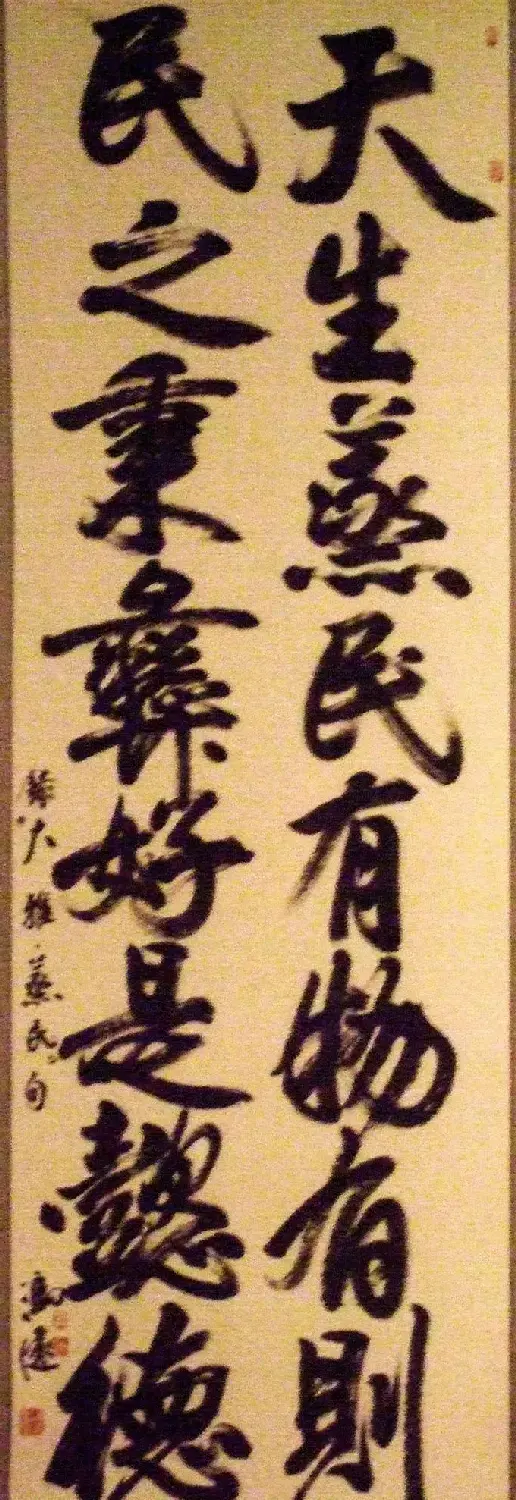 天生蒸民有物有則
民之秉彝好是懿德
錄大雅蒸民句